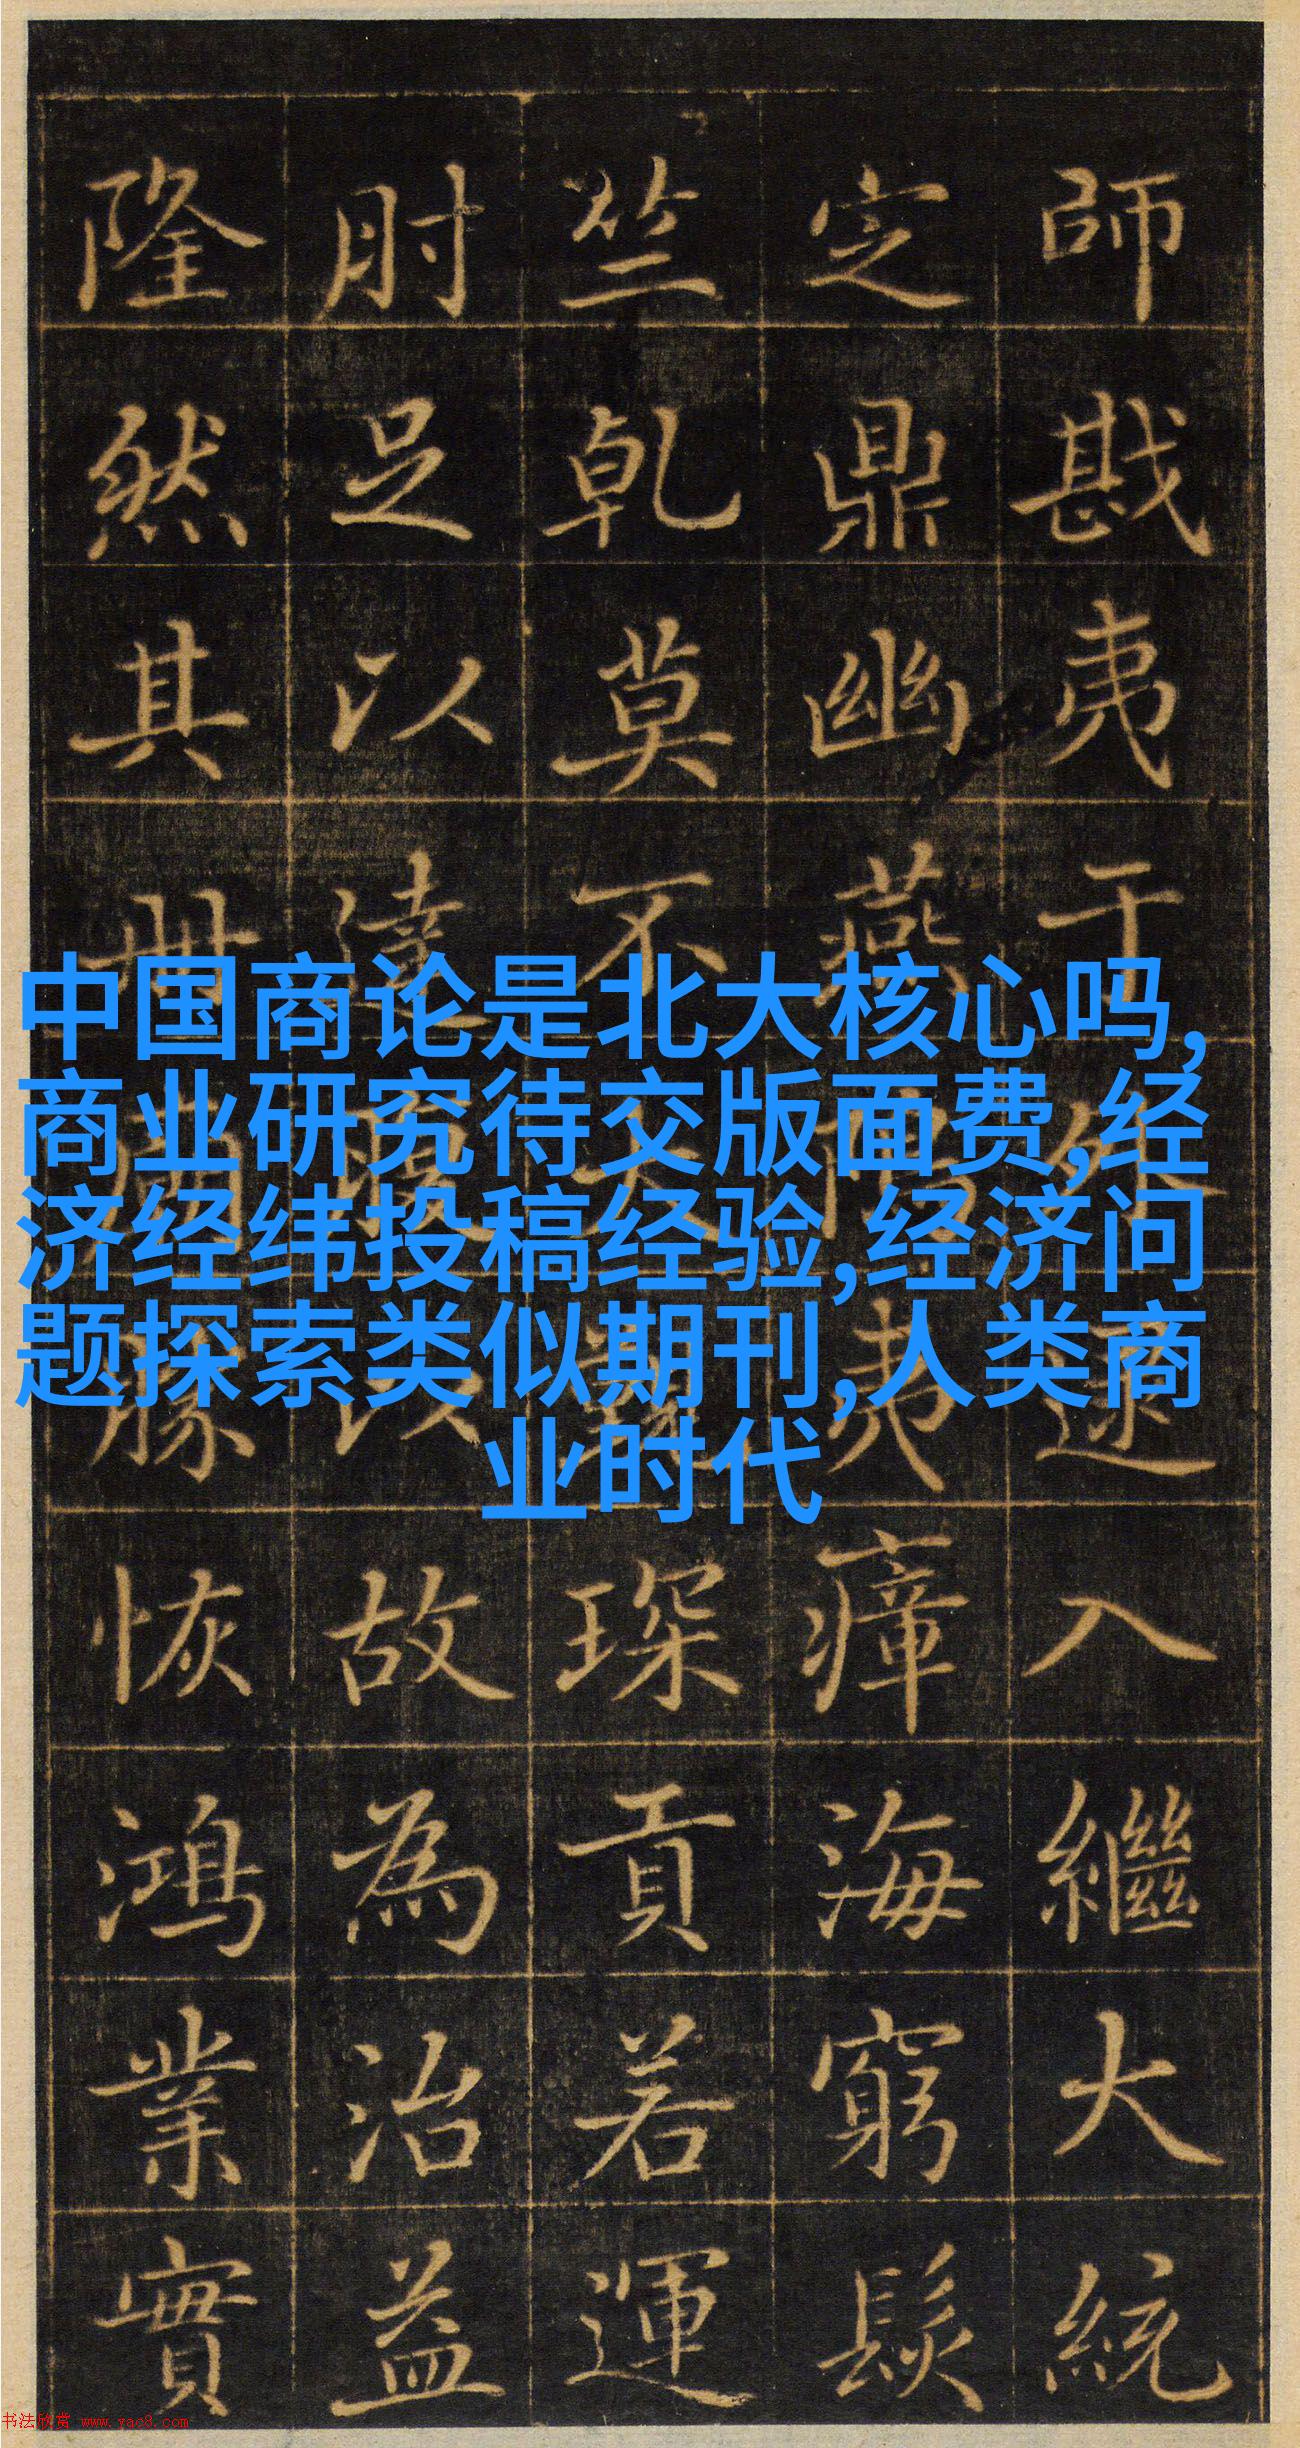 中国商论是北大核心吗,
商业研究待交版面费,经
济经纬投稿经验,经济问
题探索类似期刊,人类商
业时代
師戡夷于逮入繼大統
定鼎幽燕夷瘴海窮髮
竺乾莫不琛貢若運
肘足以達以故為治益
隆然其冊勝恢鴻業實
书法欣赏 www.yac8.com